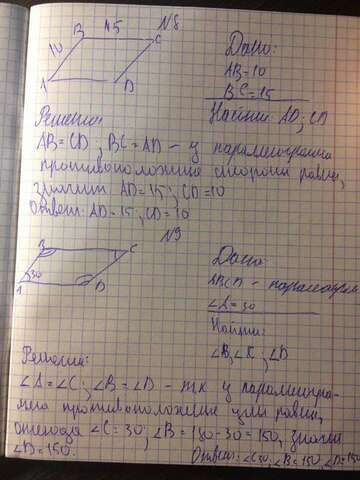 №8
B 15 C
10
A D
Дано:
AB=10
BC=15
Найти: AD; CD
Решение:
AB=CD; BC=AD - у параллелограмма
противоположные стороны равны,
значит AD=15; CD=10
Ответ: AD=15; CD=10
№9
B C
30
A D
Дано:
ABCD - параллелогр
∠A=30
Найти:
∠B, ∠C; ∠D
Решение:
∠A=∠C; ∠B=∠D - тк у параллелогра-
мма противоположные углы равны,
отсюда ∠C=30; ∠B=180-30=150, значит
∠D=150.
Ответ: ∠C30, ∠B=150, ∠D=150